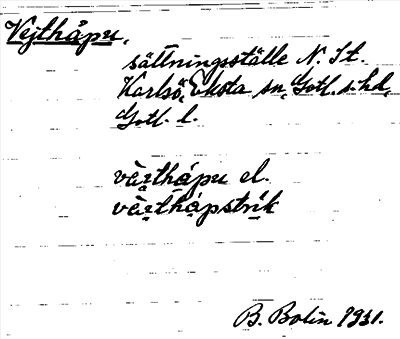 Vejthápu,
sättningsställe N. St.
Karlsö, Eksta sn, Gotl. s. hd,
Gotl. l.
vàithápu el.
vàithápstrik
B. Bolin 1931.